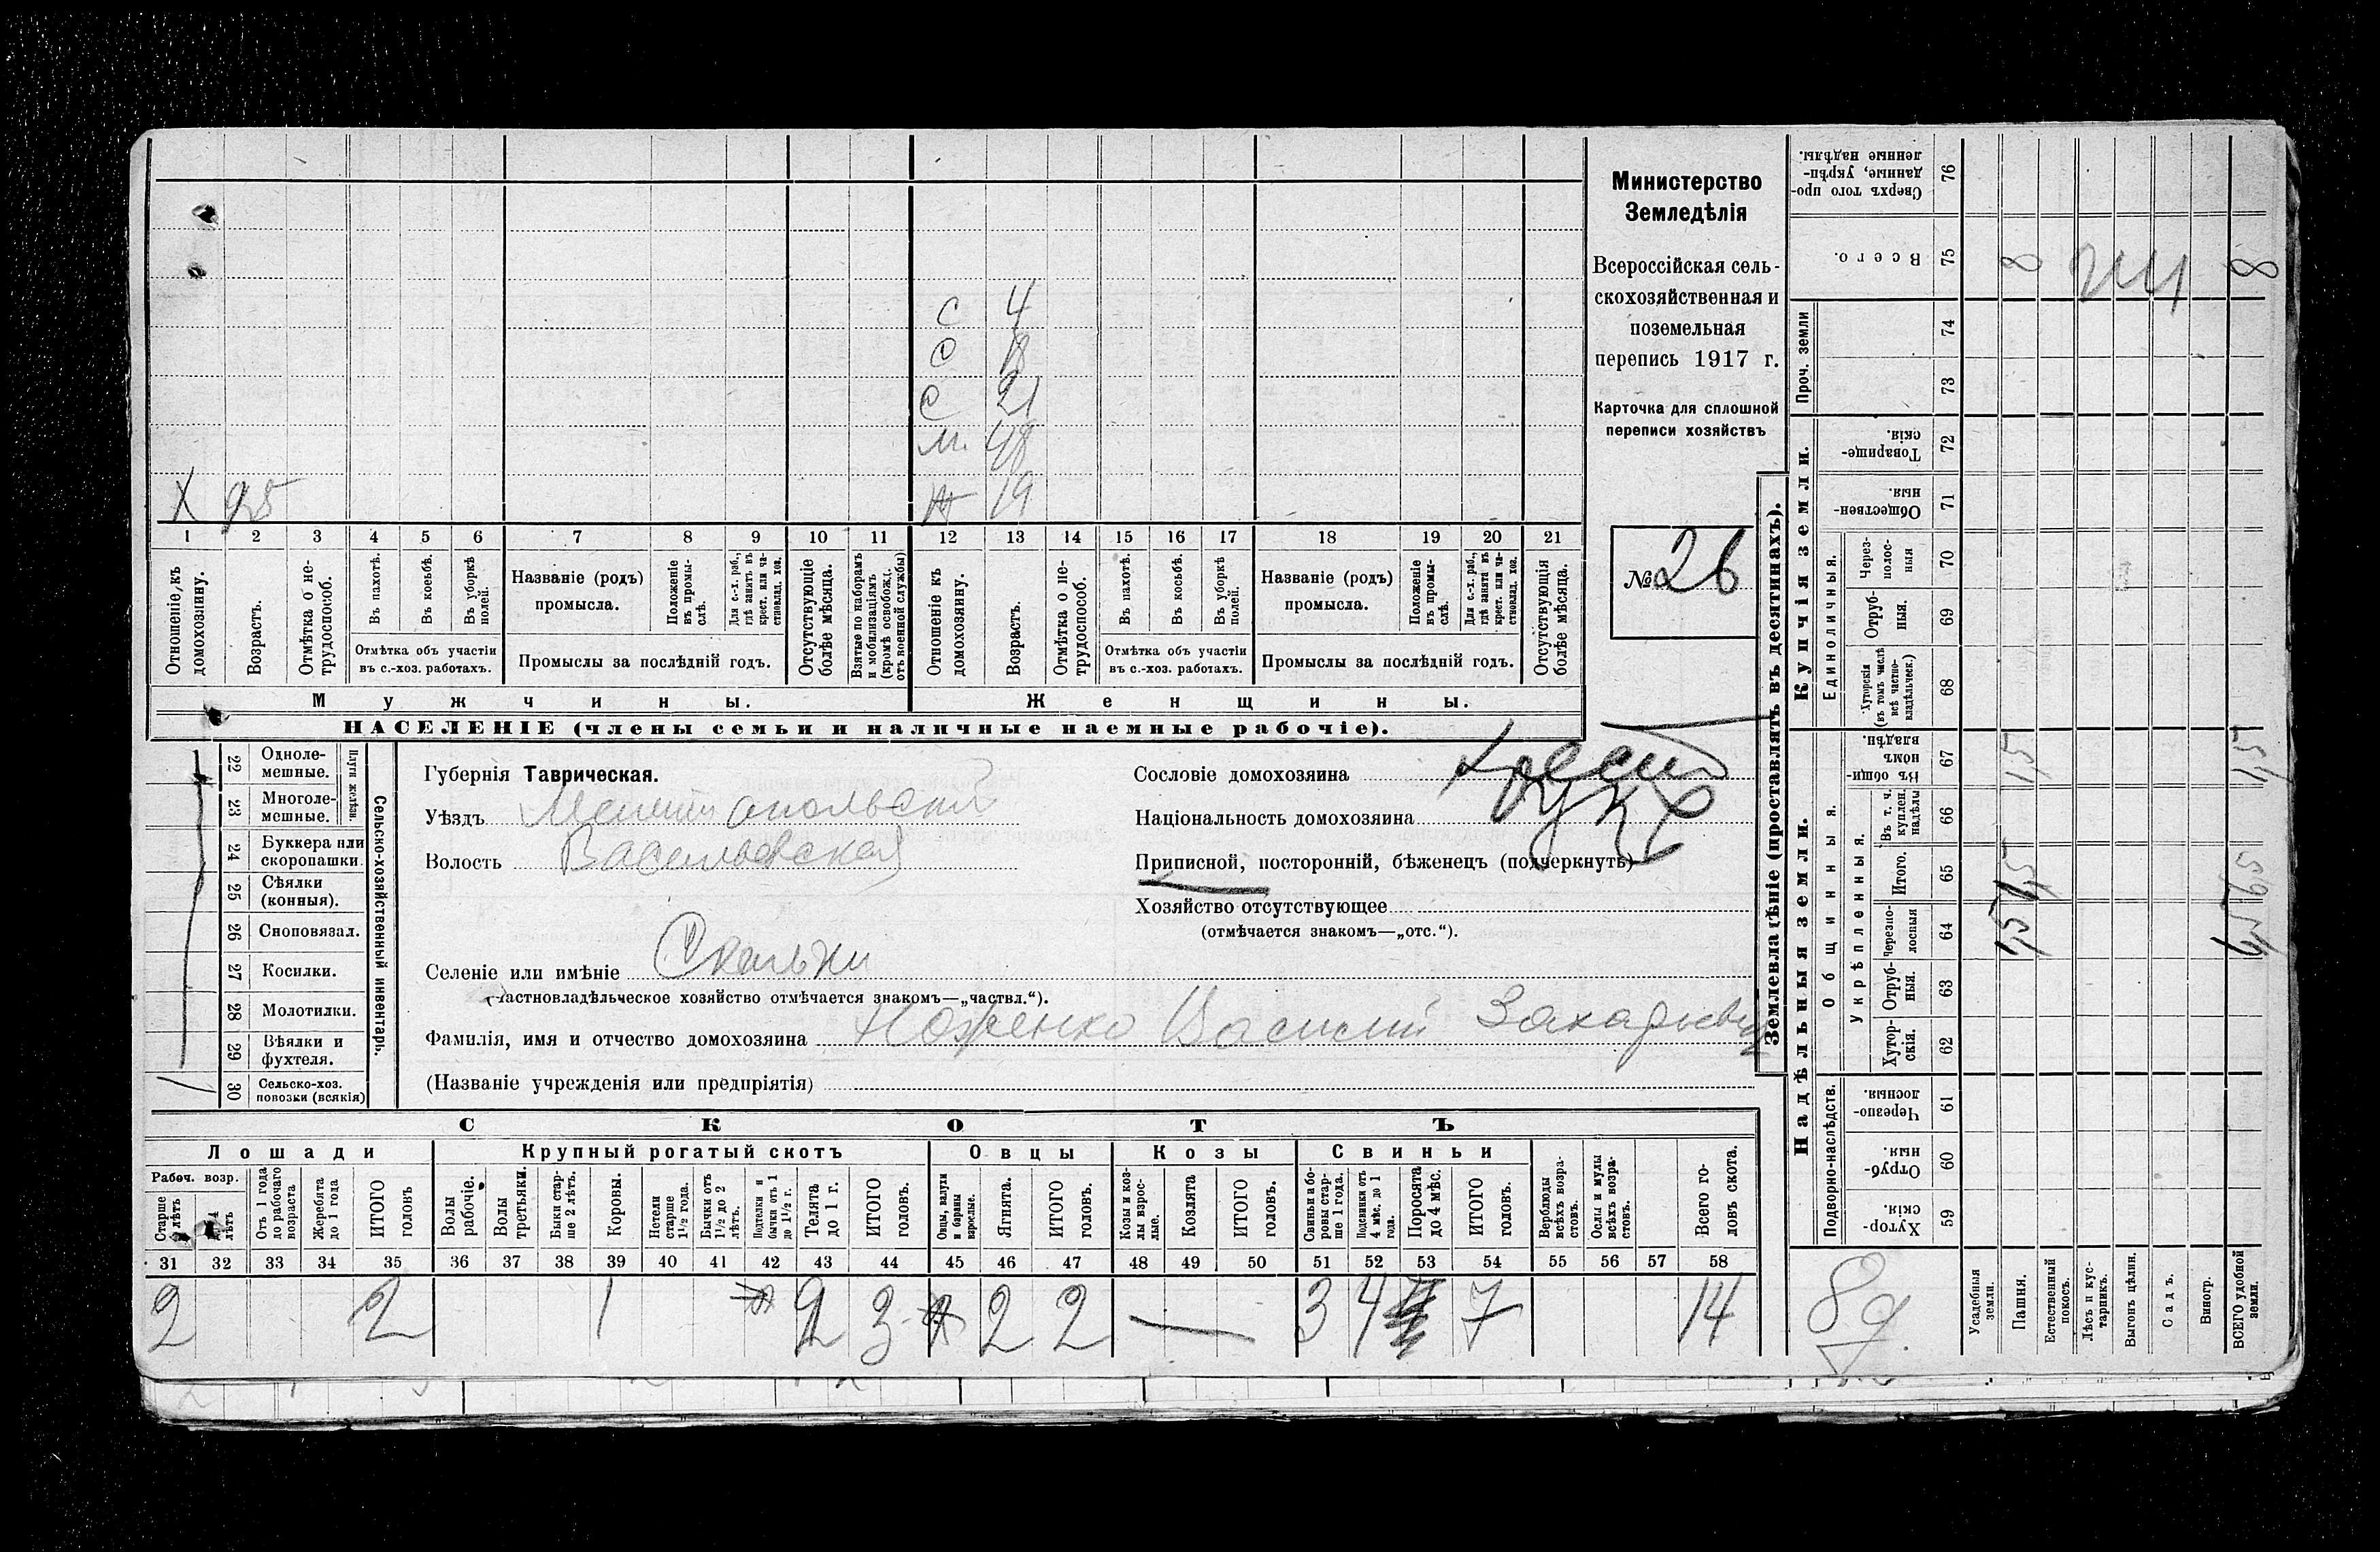 Министерство
Земледѣлія
Всероссійская сель-
скохозяйственная и
поземельная
перепись 1917 г.
Карточка для сплошной
переписи хозяйствъ
№ 26
С 4
С 18
С 21
М. 48
Х 25
Ж 19
1 2 3 4 5 6 7 8 9 10 11 12 13 14 15 16 17 18 19 20 21
Отношеніе къ домохозяину.
Возрастъ.
Отмѣтка о не-трудоспособ.
Въ пахотѣ.
Въ косьбѣ.
Въ уборкѣ полей.
Отмѣтка объ участіи
въ с.-хоз. работахъ.
Названіе (родъ)
промысла.
Положеніе въ промы-слѣ.
Для с.-х. раб., гдѣ занятъ въ крест. или ча-стновлад. хоз.
Промыслы за послѣдній годъ.
Отсутствующіе болѣе мѣсяца.
Взятые по наборамъ и мобилизаціямъ (кромѣ освобожд. отъ военной службы)
Отношеніе къ домохозяину.
Возрастъ.
Отмѣтка о не-трудоспособ.
Въ пахотѣ.
Въ косьбѣ.
Въ уборкѣ полей.
Отмѣтка объ участіи
въ с.-хоз. работахъ.
Названіе (родъ)
промысла.
Положеніе въ промы-слѣ.
Для с.-х. раб., гдѣ занята въ крест. или ча-стновлад. хоз.
Промыслы за послѣдній годъ.
Отсутствующія болѣе мѣсяца.
Мужчины.
Женщины.
НАСЕЛЕНІЕ (члены семьи и наличные наемные рабочіе).
22 Одноле-мешные.
23 Многоле-мешные.
Плуги желѣзн.
24 Буккера или скоропашки.
25 Сѣялки (конныя).
26 Сноповязал.
27 Косилки.
28 Молотилки.
29 Вѣялки и фухтеля.
30 Сельско-хоз. повозки (всякія)
Сельско-хозяйственный инвентарь.
Губернія Таврическая.
Уѣздъ Мелитопольскій
Волость Васильевская
Селеніе или имѣніе Скельки
(Частновладѣльческое хозяйство отмѣчается знакомъ—„частвл.“).
Фамилія, имя и отчество домохозяина Ноженко Василий Захарьевич
(Названіе учрежденія или предпріятія)
Сословіе домохозяина крест
Національность домохозяина
Приписной, посторонній, бѣженецъ (подчеркнуть)
Хозяйство отсутствующее
(отмѣчается знакомъ—„отс.“).
СКОТЪ
Лошади
Крупный рогатый скотъ
Овцы
Козы
Свиньи
Рабоч. возр.
Старше лѣтъ
4 лѣтъ
Отъ 1 года до рабочаго возраста
Жеребята до 1 года
ИТОГО головъ
Волы рабочіе.
Волы третьяки.
Быки стар-ше 2 лѣтъ.
Коровы.
Нетели старше 1½ года.
Бычки отъ 1½ до 2 лѣтъ.
Подтелки и бычки отъ 1 до 1½ г.
Телята до 1 г.
ИТОГО головъ.
Овцы, валухи и бараны взрослые.
Ягнята.
ИТОГО головъ.
Козы и коз-лы взрос-лые.
Козлята
ИТОГО головъ.
Свиньи и бо-ровы стар-ше 1 года.
Подсвинки отъ 4 мѣс. до 1 года.
Поросята до 4 мѣс.
ИТОГО головъ.
Верблюды всѣхъ возра-стовъ.
Ослы и мулы всѣхъ возра-стовъ.
Всего го-ловъ скота.
31 32 33 34 35 36 37 38 39 40 41 42 43 44 45 46 47 48 49 50 51 52 53 54 55 56 57 58
2 2 1 2 3 2 2 — 3 4 7 14
Землевладѣніе (проставлять въ десятинахъ).
Надѣльныя земли.
Купчія земли.
Проч. земли
Подворно-наслѣдств.
Общинныя.
Укрѣпленныя.
Единоличныя.
Хутор-скія. 59
Отруб-ныя. 60
Черезпо-лосныя. 61
Хутор-скія. 62
Отруб-ныя. 63
Черезпо-лосныя 64
Итого. 65
Въ т. ч. куплен. надѣлы 66
Въ общи-номъ владѣн. 67
Хуторскія (въ томъ числѣ всѣ частно-владѣльческ.) 68
Отруб-ныя. 69
Через-полос-ныя 70
Обществен-ныя. 71
Товарище-скія. 72
73
74
Всего. 75
Сверхъ того про-данные, укрѣп-ленные надѣлы. 76
Усадебныя земли.
Пашня.
Естественный покосъ.
Лѣсъ и кус-тарникъ.
Выгонъ цѣлин.
Садъ.
Виногр.
ВСЕГО удобной земли.
8 8
1,5 1,5